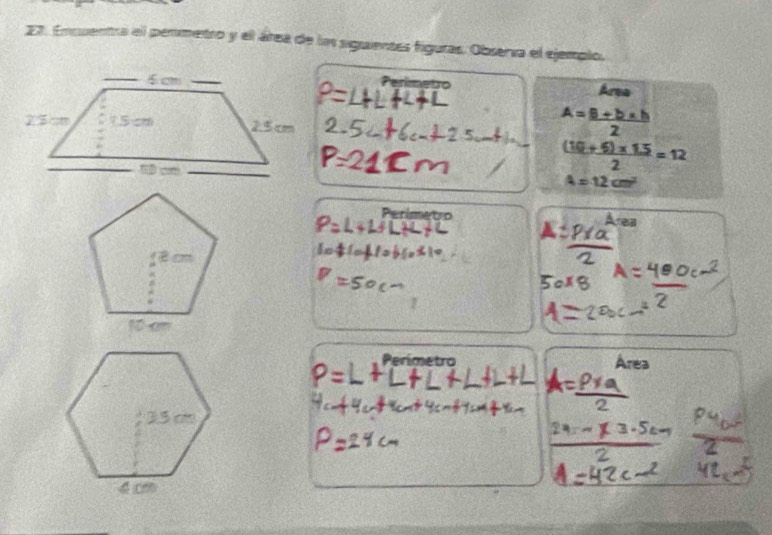 27. Encuentra el perímetro y el área de las siguientes figuras. Observa el ejemplo.
6 cm
2.5 cm
1.5 cm
2.5 cm
10 cm
Perímetro
P=L+L+L+L
2.5cm+6cm+2.5cm+10
P=21cm
Área
A=B+b×h
2
(10+6)×1.5=12
2
A=12 cm²
8 cm
10 cm
Perímetro
P=L+L+L+L+L
10+10+10+10+10
P=50cm
Área
A=Pxa
2
50x8
A=400cm²
2
A=200cm²
3.5 cm
4 cm
Perímetro
P=L+L+L+L+L+L
4cm+4cm+4cm+4cm+4cm+4cm
P=24cm
Área
A=Pxa
2
24cm x 3.5cm
2
A=42cm²
2
42cm²